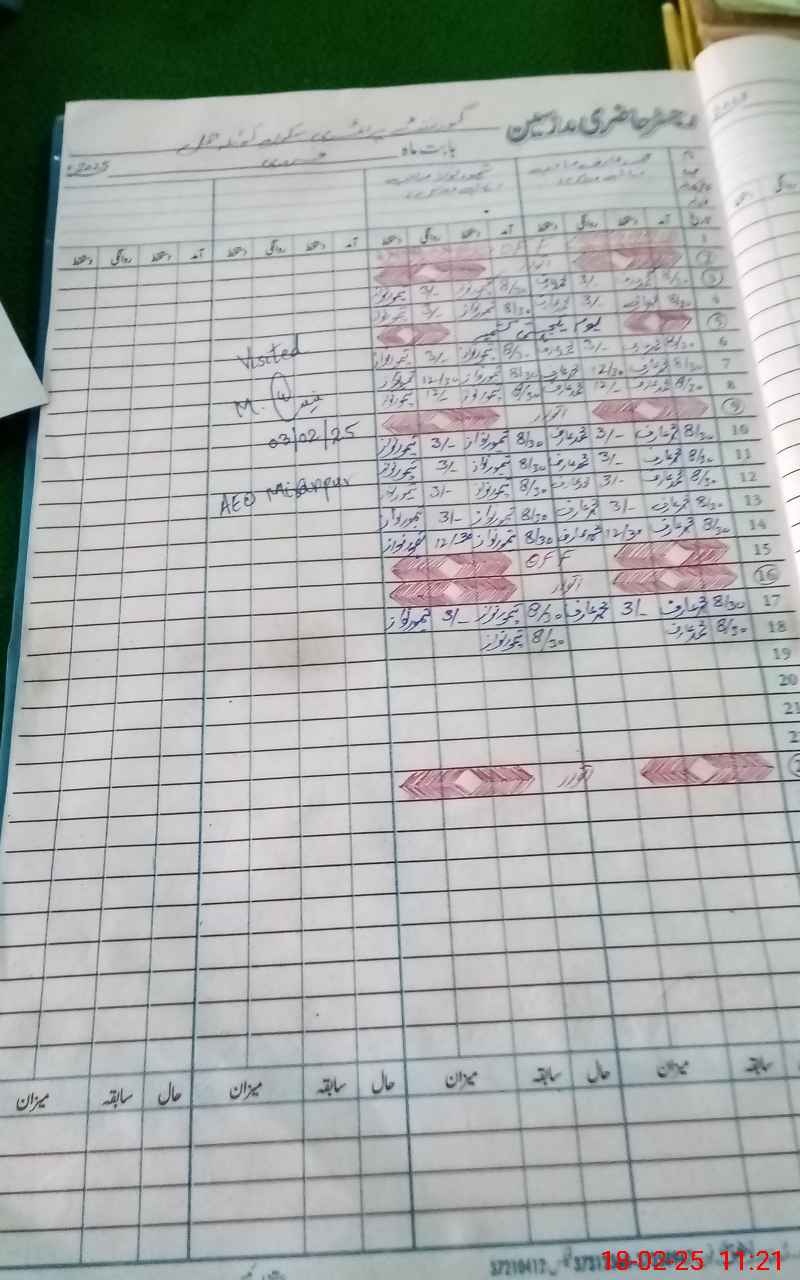 رجسٹر حاضری مدرسین
بابت ماہ فروری 2025ء
تاریخ آمد دستخط روانگی دستخط آمد دستخط روانگی دستخط آمد دستخط روانگی دستخط آمد دستخط روانگی دستخط
1 OFF
2 اتوار
3 8/30 محمد عارف 3/- محمد عارف 8/30 تیمور نواز 3/- تیمور نواز
4 8/30 محمد عارف 3/- محمد عارف 8/30 تیمور نواز 3/- تیمور نواز
5 یوم یکجہتی کشمیر
6 8/30 محمد عارف 3/- محمد عارف 8/30 تیمور نواز 3/- تیمور نواز
7 8/30 محمد عارف 12/30 محمد عارف 8/30 تیمور نواز 12/30 تیمور نواز
8 8/30 محمد عارف 12/- محمد عارف 8/30 تیمور نواز 12/- تیمور نواز
9 اتوار
10 8/30 محمد عارف 3/- محمد عارف 8/30 تیمور نواز 3/- تیمور نواز
11 8/30 محمد عارف 3/- محمد عارف 8/30 تیمور نواز 3/- تیمور نواز
12 8/30 محمد عارف 3/- محمد عارف 8/30 تیمور نواز 3/- تیمور نواز
13 8/30 محمد عارف 3/- محمد عارف 8/30 تیمور نواز 3/- تیمور نواز
14 8/30 محمد عارف 12/30 محمد عارف 8/30 تیمور نواز 12/30 تیمور نواز
15 OFF
16 اتوار
17 8/30 محمد عارف 3/- محمد عارف 8/30 تیمور نواز 3/- تیمور نواز
18 8/30 محمد عارف 8/30 تیمور نواز
19
20
21
اتوار
Visited
M.
03/02/25
AEO Misanpur
سابقہ میزان حال سابقہ میزان حال سابقہ میزان حال سابقہ میزان
18-02-25 11:21